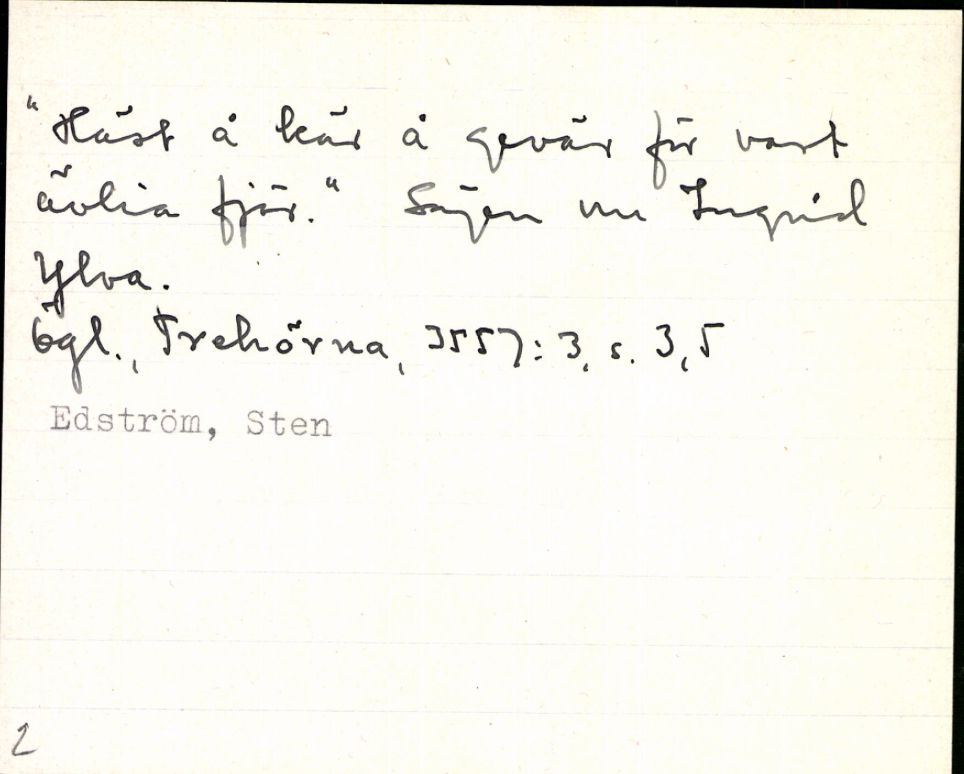 "Häst å kär å gevär för vart
ävlia fjör." Sägen om Ingrid
Ylva.
Ögl., Trehörna, 3557:3, s. 3,5
Edström, Sten
2